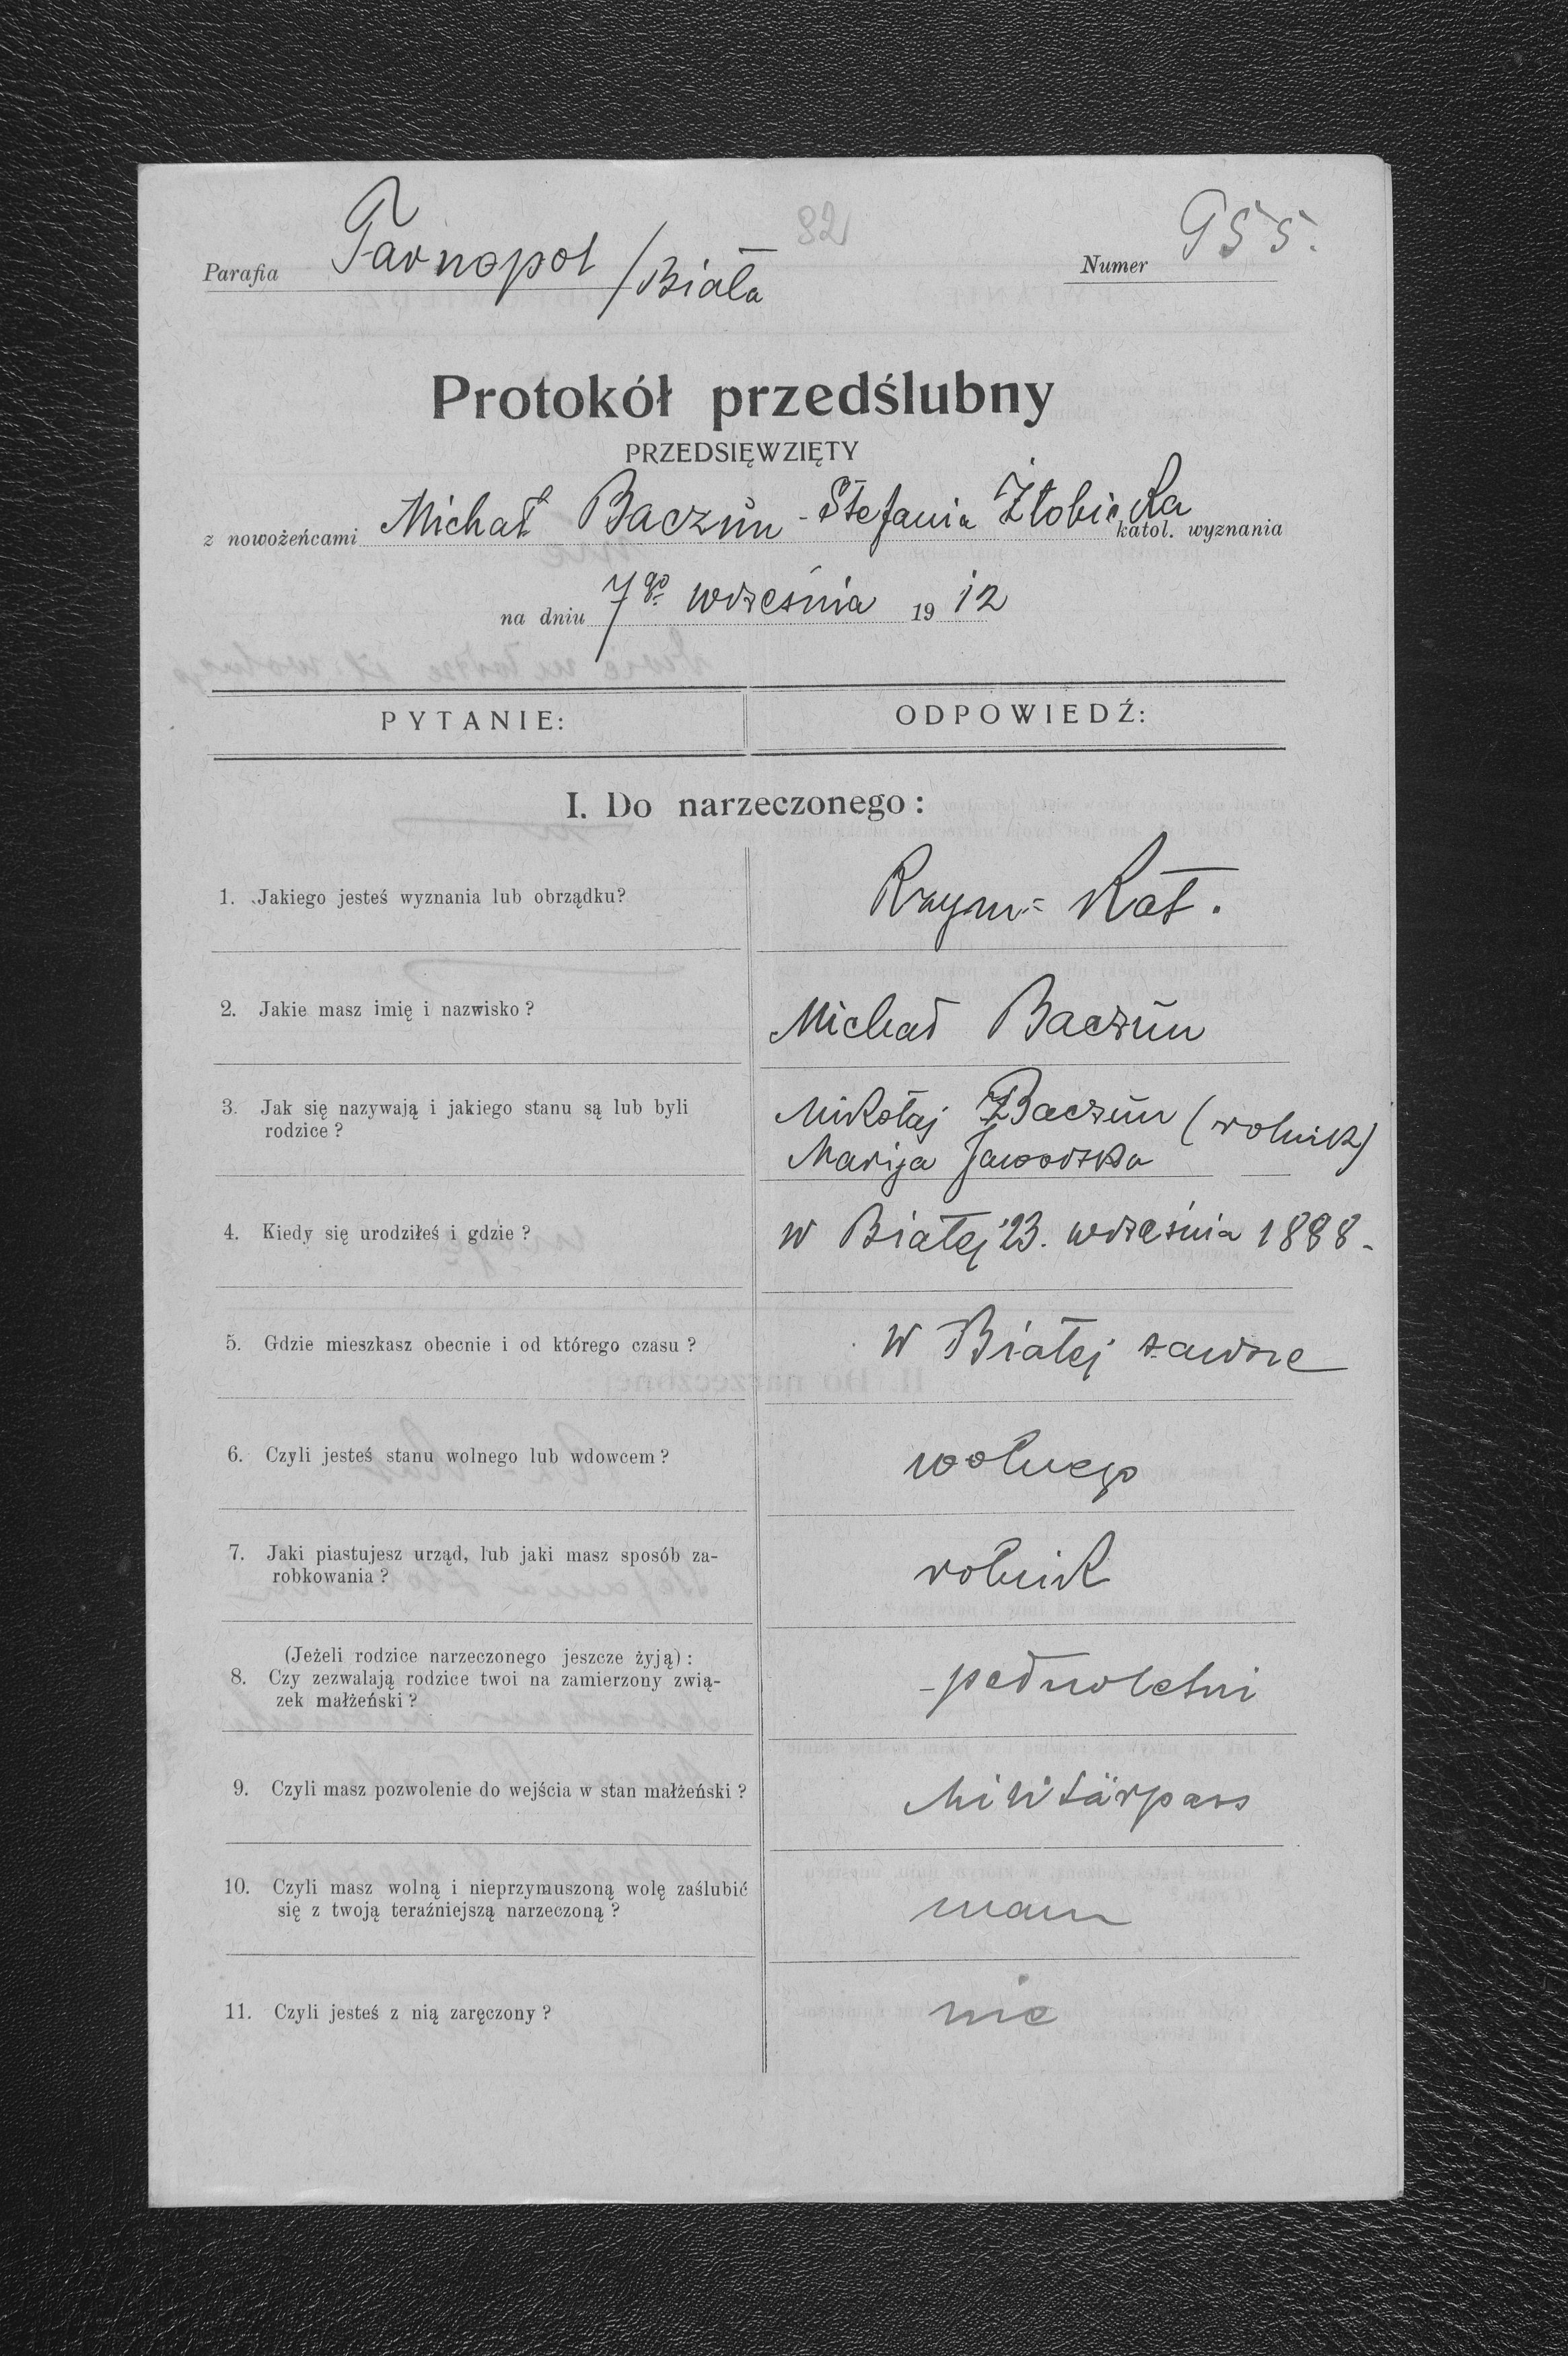 82
Parafia Tarnopol / Biała Numer 955.
Protokół przedślubny
PRZEDSIĘWZIĘTY
z nowożeńcami Michał Baczun - Stefania Żłobicka katol. wyznania
na dniu 7go września 1912
PYTANIE: ODPOWIEDŹ:
I. Do narzeczonego:
1. Jakiego jesteś wyznania lub obrządku? Rzym= Kat.
2. Jakie masz imię i nazwisko? Michał Baczun
3. Jak się nazywają i jakiego stanu są lub byli Mikołaj Baczun (rolnik)
rodzice? Marija Jaworska
4. Kiedy się urodziłeś i gdzie? w Białej 23. września 1888.
5. Gdzie mieszkasz obecnie i od którego czasu? w Białej zawsze
6. Czyli jesteś stanu wolnego lub wdowcem? wolnego
7. Jaki piastujesz urząd, lub jaki masz sposób za-
robkowania? rolnik
(Jeżeli rodzice narzeczonego jeszcze żyją):
8. Czy zezwalają rodzice twoi na zamierzony zwią- -pełnoletni
zek małżeński?
9. Czyli masz pozwolenie do wejścia w stan małżeński? Militärpass
10. Czyli masz wolną i nieprzymuszoną wolę zaślubić
się z twoją teraźniejszą narzeczoną? mam
11. Czyli jesteś z nią zaręczony? nie